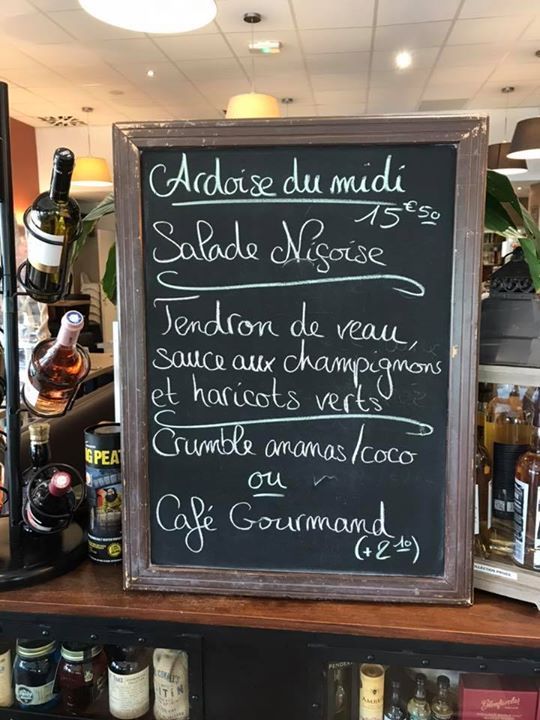 Ardoise du midi
15€50
Salade Niçoise
Tendron de veau,
sauce aux champignons
et haricots verts
Crumble ananas/coco
ou
Café Gourmand
(+2 10)
G PEAT
PENDER
AMBER